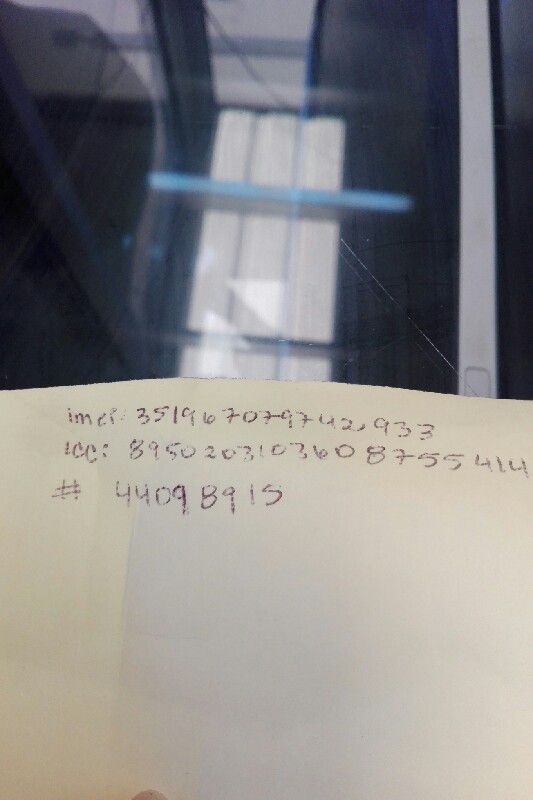 imei: 351967079742933
icc: 8950203103608755414
# 44098915